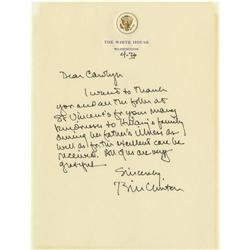 THE WHITE HOUSE
WASHINGTON
Dear Carolyn
I want to thank
you and all the folks at
St Vincent's for your many
kindnesses to Hillary's family
during her father's illness as
well as for the excellent care he
received. All of us are very
grateful.
Sincerely
Bill Clinton